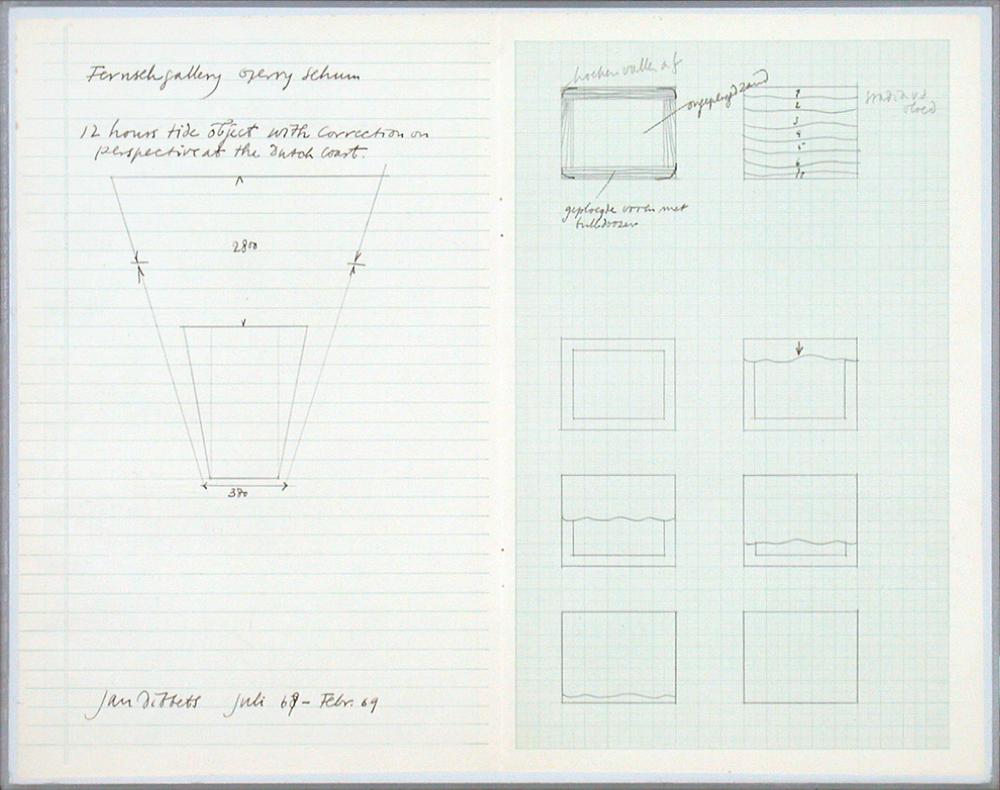 Fernsehgallery Gerry Schum
12 hours tide object with correction on
perspective at the Dutch coast.
2800
380
Jan Dibbets Juli 68 – Febr. 69
hoeken vallen af
ongeploegd zand
geploegde voren met
bulldozer
1
2
3
4
5
6
vloed